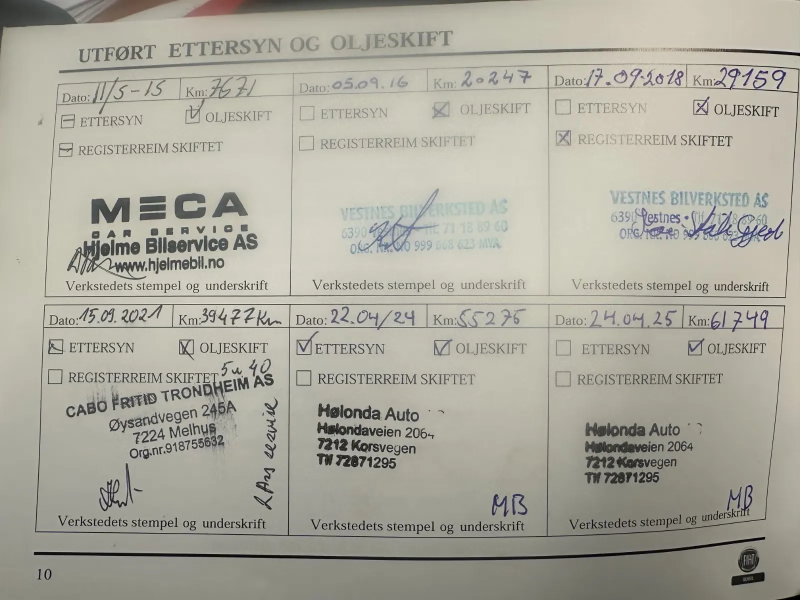 UTFØRT ETTERSYN OG OLJESKIFT
Dato: 11/5-15 Km: 7671
ETTERSYN OLJESKIFT
REGISTERREIM SKIFTET
MECA
CAR SERVICE
Hjelme Bilservice AS
www.hjelmebil.no
Verkstedets stempel og underskrift
Dato: 05.09.16 Km: 20247
ETTERSYN OLJESKIFT
REGISTERREIM SKIFTET
VESTNES BILVERKSTED AS
6390 71 18 89 60
ORG. NO 999 868 623 MVA
Verkstedets stempel og underskrift
Dato: 17.09.2018 Km: 29159
ETTERSYN OLJESKIFT
REGISTERREIM SKIFTET
VESTNES BILVERKSTED AS
6390 Vestnes
Verkstedets stempel og underskrift
Dato: 15.09.2021 Km: 39477 Km
ETTERSYN OLJESKIFT
REGISTERREIM SKIFTET 5w40
CABO FRITID TRONDHEIM AS
Øysandvegen 245A
7224 Melhus
Org.nr.918755632
Verkstedets stempel og underskrift
Dato: 22.04/24 Km: 55275
ETTERSYN OLJESKIFT
REGISTERREIM SKIFTET
Hølonda Auto
Hølondaveien 2064
7212 Korsvegen
Tlf 72871295
MB
Verkstedets stempel og underskrift
Dato: 24.04.25 Km: 61749
ETTERSYN OLJESKIFT
REGISTERREIM SKIFTET
Hølonda Auto
Hølondaveien 2064
7212 Korsvegen
Tlf 72871295
MB
Verkstedets stempel og underskrift
10
FIAT